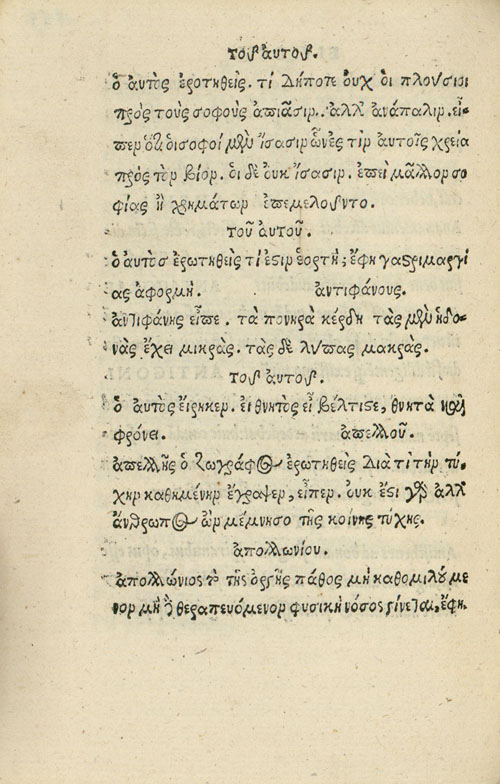 τοῦ αὐτοῦ.
ὁ αὐτὸς ἐροτηθεὶς. τί Δήποτε ὀυχ ὁι πλούσιοι
πρὸς τοὺς σοφοὺς ἀπιᾶσιν. ἀλλ' ἀνάπαλιν. εἶ
περ ὅτι ὁισοφοί μὲν ἴσασιν ὧν ἐς τὶν αυτοῖς χρεία
πρὸς τὸν βίον. ὁι δὲ ὀυκ ἴσασιν. ἐπεὶ μᾶλλον σο
φίας ἢ χρημάτων ἐπεμελοῦντο.
τοῦ ἀυτοῦ.
ὁ ἀυτὸσ ἐρωτηθεὶς τί ἐστιν ἑορτὴ; ἔφη γαστριμαργί
ας ἀφορμὴ. ἀντιφάνους.
ἀντιφάνης εἶπε. τὰ πονηρὰ κέρδη τὰς μὲν ἡδο-
νὰς ἔχει μικρὰς. τὰς δὲ λύπας μακρὰς.
τοῦ ἀυτοῦ.
ὁ ἀυτὸς ἔιρηκεν. ἐι θνητὸς εἶ βέλτιστε, θνητὰ καὶ
φρόνει. ἀπελλοῦ.
ἀπελλῆς ὁ ζωγράφος ἐρωτηθεὶς Διὰ τί τὴν τύ-
χην καθημένην ἔγραψεν, εἶπεν. ὀυκ ἔστι γὰρ ἀλλ'
ἄνθρωπος ὢν μέμνησο τῆς κοίνης τύχης.
ἀπολλωνίου.
ἀπολλώνιος τὸ τῆς ὀργῆς πάθος μὴ καθομιλούμε
νον μὴ θεραπευόμενον φυσικὴ νόσος γίνεται, ἔφη.